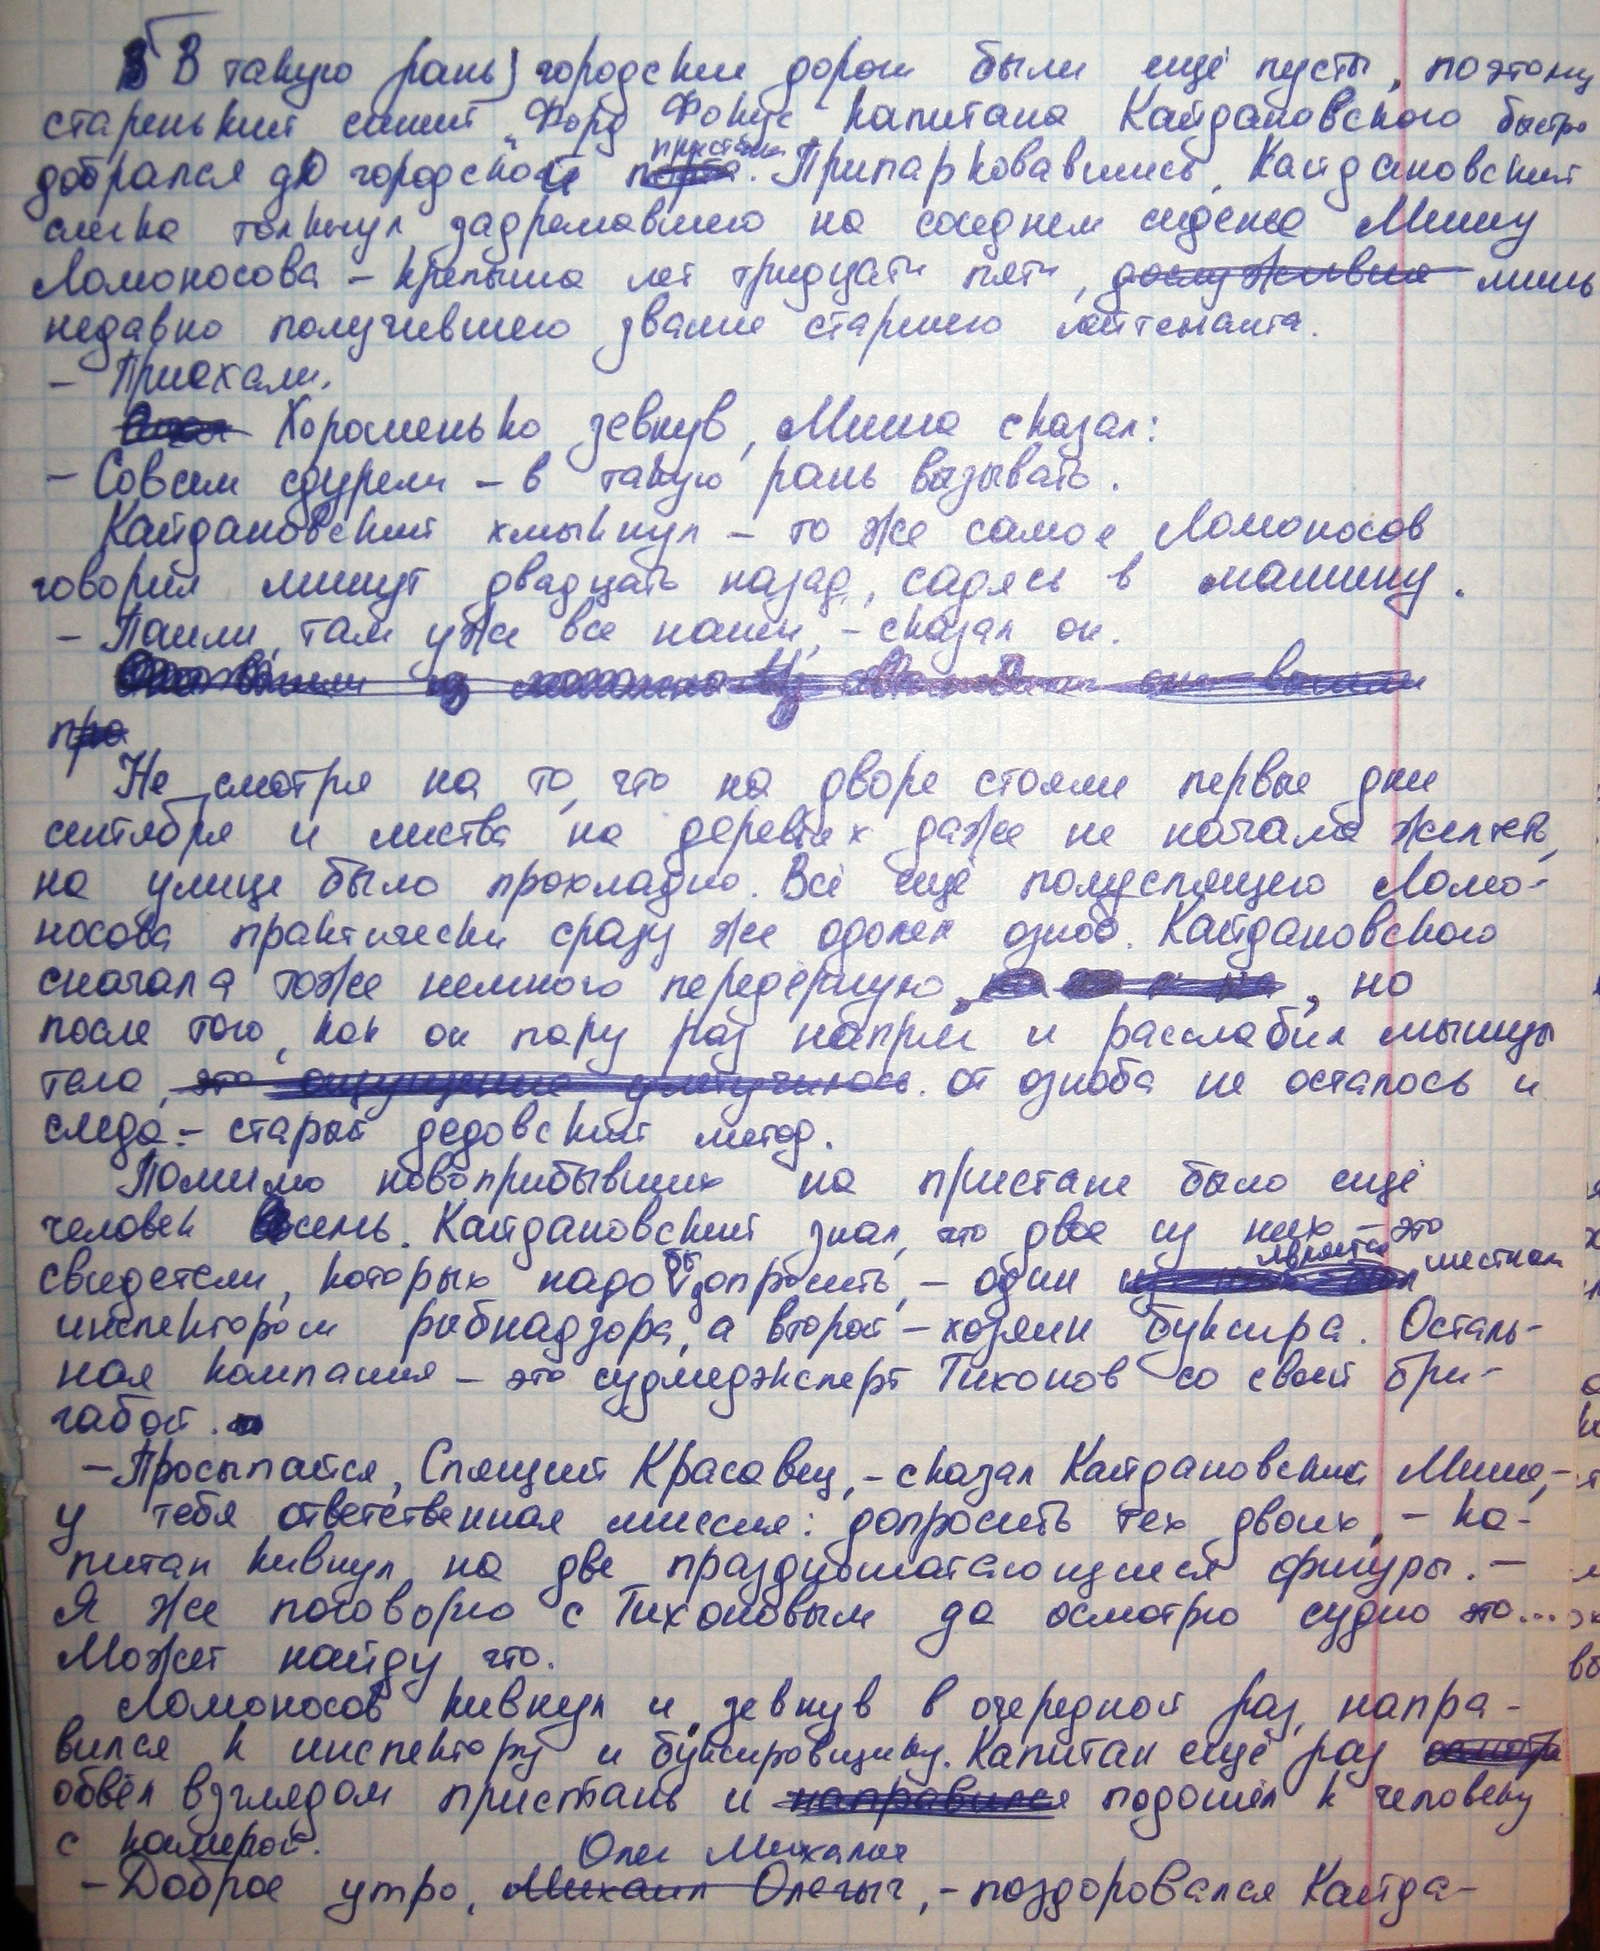 В такую рань городские дороги были ещё пусты, поэтому
старенький синий "Форд Фокус" капитана Кайдановского быстро
добрался до городской пристани. Припарковавшись, Кайдановский
слегка толкнул задремавшего на соседнем сиденье Мишу
Ломоносова – крепыша лет тридцати пяти, лишь
недавно получившего звание старшего лейтенанта.
– Приехали.
Хорошенько зевнув, Миша сказал:
– Совсем сдурели – в такую рань вызывать.
Кайдановский хмыкнул – то же самое Ломоносов
говорил минут двадцать назад, садясь в машину.
– Пошли, там уже все наши, – сказал он.
про
Не смотря на то, что на дворе стояли первые дни
сентября и листва на деревьях даже не начала желтеть,
на улице было прохладно. Всё ещё полуспящего Ломо-
носова практически сразу же одолел озноб. Кайдановского
сначала тоже немного передёрнуло, но
после того, как он пару раз напряг и расслабил мышцы
тела, это ощущение улетучилось. от озноба не осталось и
следа – старый дедовский метод.
Помимо новоприбывших на пристани было ещё
человек восемь. Кайдановский знал, что двое из них – это
свидетели, которых надо бы допросить, – один является местным
инспектором рыбнадзора, а второй – хозяин буксира. Осталь-
ная компания – это судмедэксперт Тихонов со своей бри-
габой.
– Просыпайся, Спящий Красавец, – сказал Кайдановский Мише, –
у тебя ответственная миссия: допросить тех двоих, – ка-
питан кивнул на две праздношатающиеся фигуры. –
Я же поговорю с Тихоновым да осмотрю судно это...
Может найду что.
Ломоносов кивнул и, зевнув в очередной раз, напра-
вился к инспектору и буксировщику. Капитан ещё раз
обвёл взглядом пристань и направился подошёл к человеку
с камерой.
Олег Михалыч
– Доброе утро, Михаил Олегыч, – поздоровался Кайда-